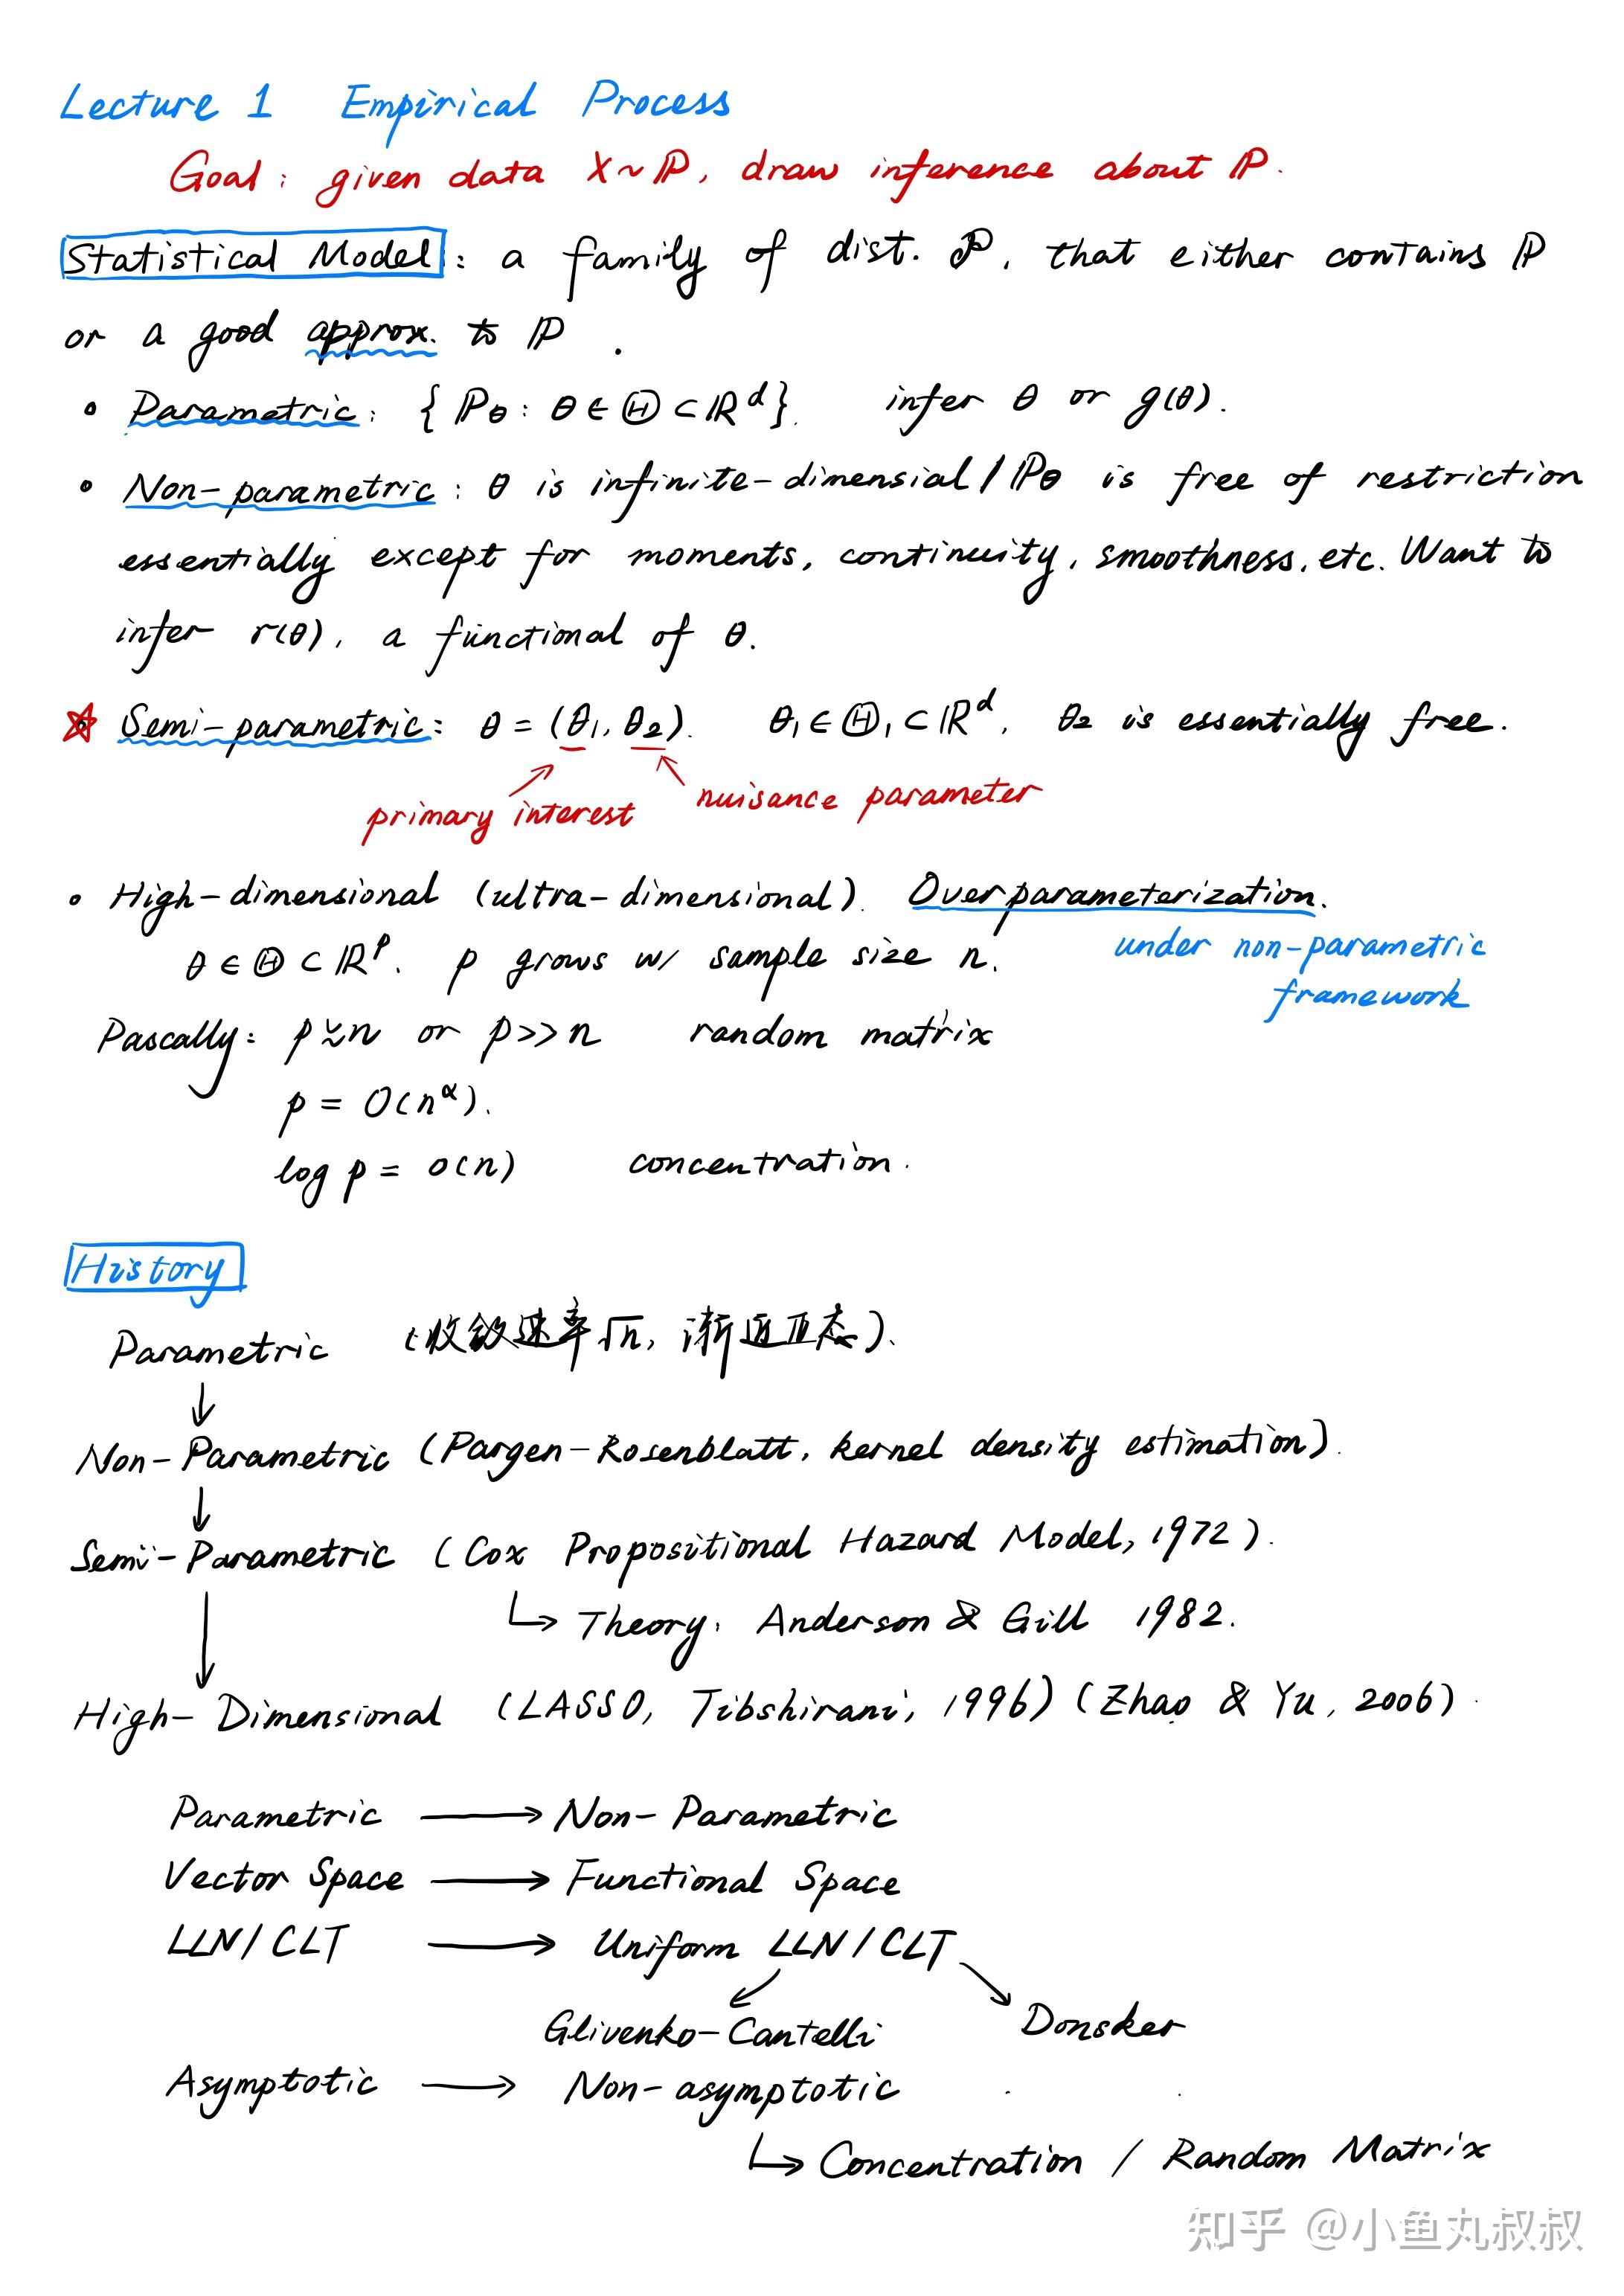 Lecture 1 Empirical Process
Goal: given data X~ℙ, draw inference about ℙ.
Statistical Model: a family of dist. 𝒫, that either contains ℙ
or a good approx. to ℙ.
• Parametric: {ℙθ: θ∈Θ⊂ℝ^d}. infer θ or g(θ).
• Non-parametric: θ is infinite-dimensial / ℙθ is free of restriction
essentially except for moments, continuity, smoothness, etc. Want to
infer r(θ), a functional of θ.
☆ Semi-parametric: θ = (θ₁, θ₂). θ₁∈Θ₁⊂ℝ^d, θ₂ is essentially free.
primary interest nuisance parameter
• High-dimensional (ultra-dimensional). Overparameterization.
θ∈Θ⊂ℝ^p. p grows w/ sample size n. under non-parametric
framework
Pascally: p ≍ n or p>>n random matrix
p = O(n^α).
log p = o(n) concentration.
History
Parametric (收敛速率√n, 渐近正态).
↓
Non-Parametric (Pargen-Rosenblatt, kernel density estimation).
↓
Semi-Parametric (Cox Propositional Hazard Model, 1972).
↓ ↳ Theory: Anderson & Gill 1982.
High-Dimensional (LASSO, Tibshirani, 1996) (Zhao & Yu, 2006).
Parametric → Non-Parametric
Vector Space → Functional Space
LLN/CLT → Uniform LLN/CLT
Glivenko-Cantelli Donsker
Asymptotic → Non-asymptotic
↳ Concentration / Random Matrix
知乎 @小鱼丸叔叔